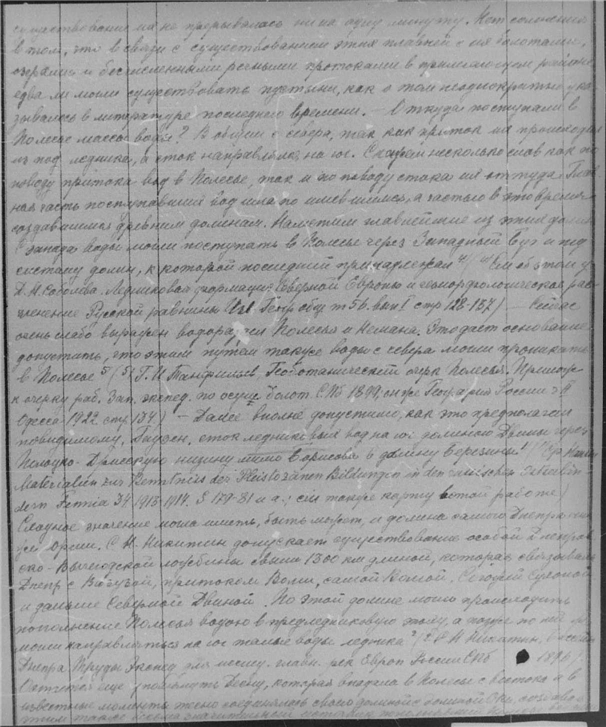 существование их не прерывалось ни на одну минуту. Нет сомнения
в том, что в связи с существованием этих плавней с их болотами,
озерами и бесчисленными речными протоками в данном районе
едва ли могли существовать пустыни, как о том неоднократно ука
зывалось в литературе последнего времени. — Откуда поступали в
Полесье массы воды? В общем с севера, так как приток их происходил
из под ледника, а сток направлялся на юг. Скажем несколько слов как по
поводу притока вод в Полесье, так и по поводу стока их оттуда. Глав
ная часть поступавших вод шла по имевшимся, а частью в это время
создавшимся древним долинам. Наметим главнейшие из этих долин
С запада воды могли поступать в Полесье через Западный Буг и
систему долин, к которой последний принадлежал 4/ 4/ См об этом у
Д. Н. Соболева. Ледниковая формация Северной Европы и геоморфологическое рас
членение Русской равнины Изв Геогр общ т 56. вып I стр 128-157/ — Сейчас
очень слабо выражен водораздел Полесья и Немана. Это дает основание
допустить, что этим путем также воды с севера могли проникать
в Полесье 5/ 5/ Г. И Танфильев, Геоботанический очерк Полесья.
к очерку раб. Зап. экспед. по осуш. болот. СПб 1899; География России
Одесса 1922 стр 134/ — Далее вполне допустимо, как это предполагал
повидимому, сток ледниковых вод на юг долиною Двины через
Полоцко- низину мимо Борисова в долину Березины
Materialien zur Kenntnis der Pleistozänen Bildungen in den
Fennia 34 1913-1914. S 179-81 и а.; см также карту в этой работе/
Сходное значение могла иметь, быть может, и долина самого Днепра
Орши. С. Н. Никитин допускает существование особой Днепров
ско-Вычегодской ложбины свыше 1300 км длиной, которая связывала
Днепр с Вазузой, притоком Волги, самой Волгой,
и дальше Северной Двиной. По этой долине могло происходить
пополнение Полесья водою в предледниковую эпоху, а позже по ней
могли направляться на юг талые воды ледника 7/ С Н Никитин.
Днепра Труды Экспед для исслед. главн. рек Европ России СПб 1896/
Остается еще упомянуть Десну, которая впадала в Полесье с востока и в
известные моменты тесно соединялась своею долиной с долиной Оки,